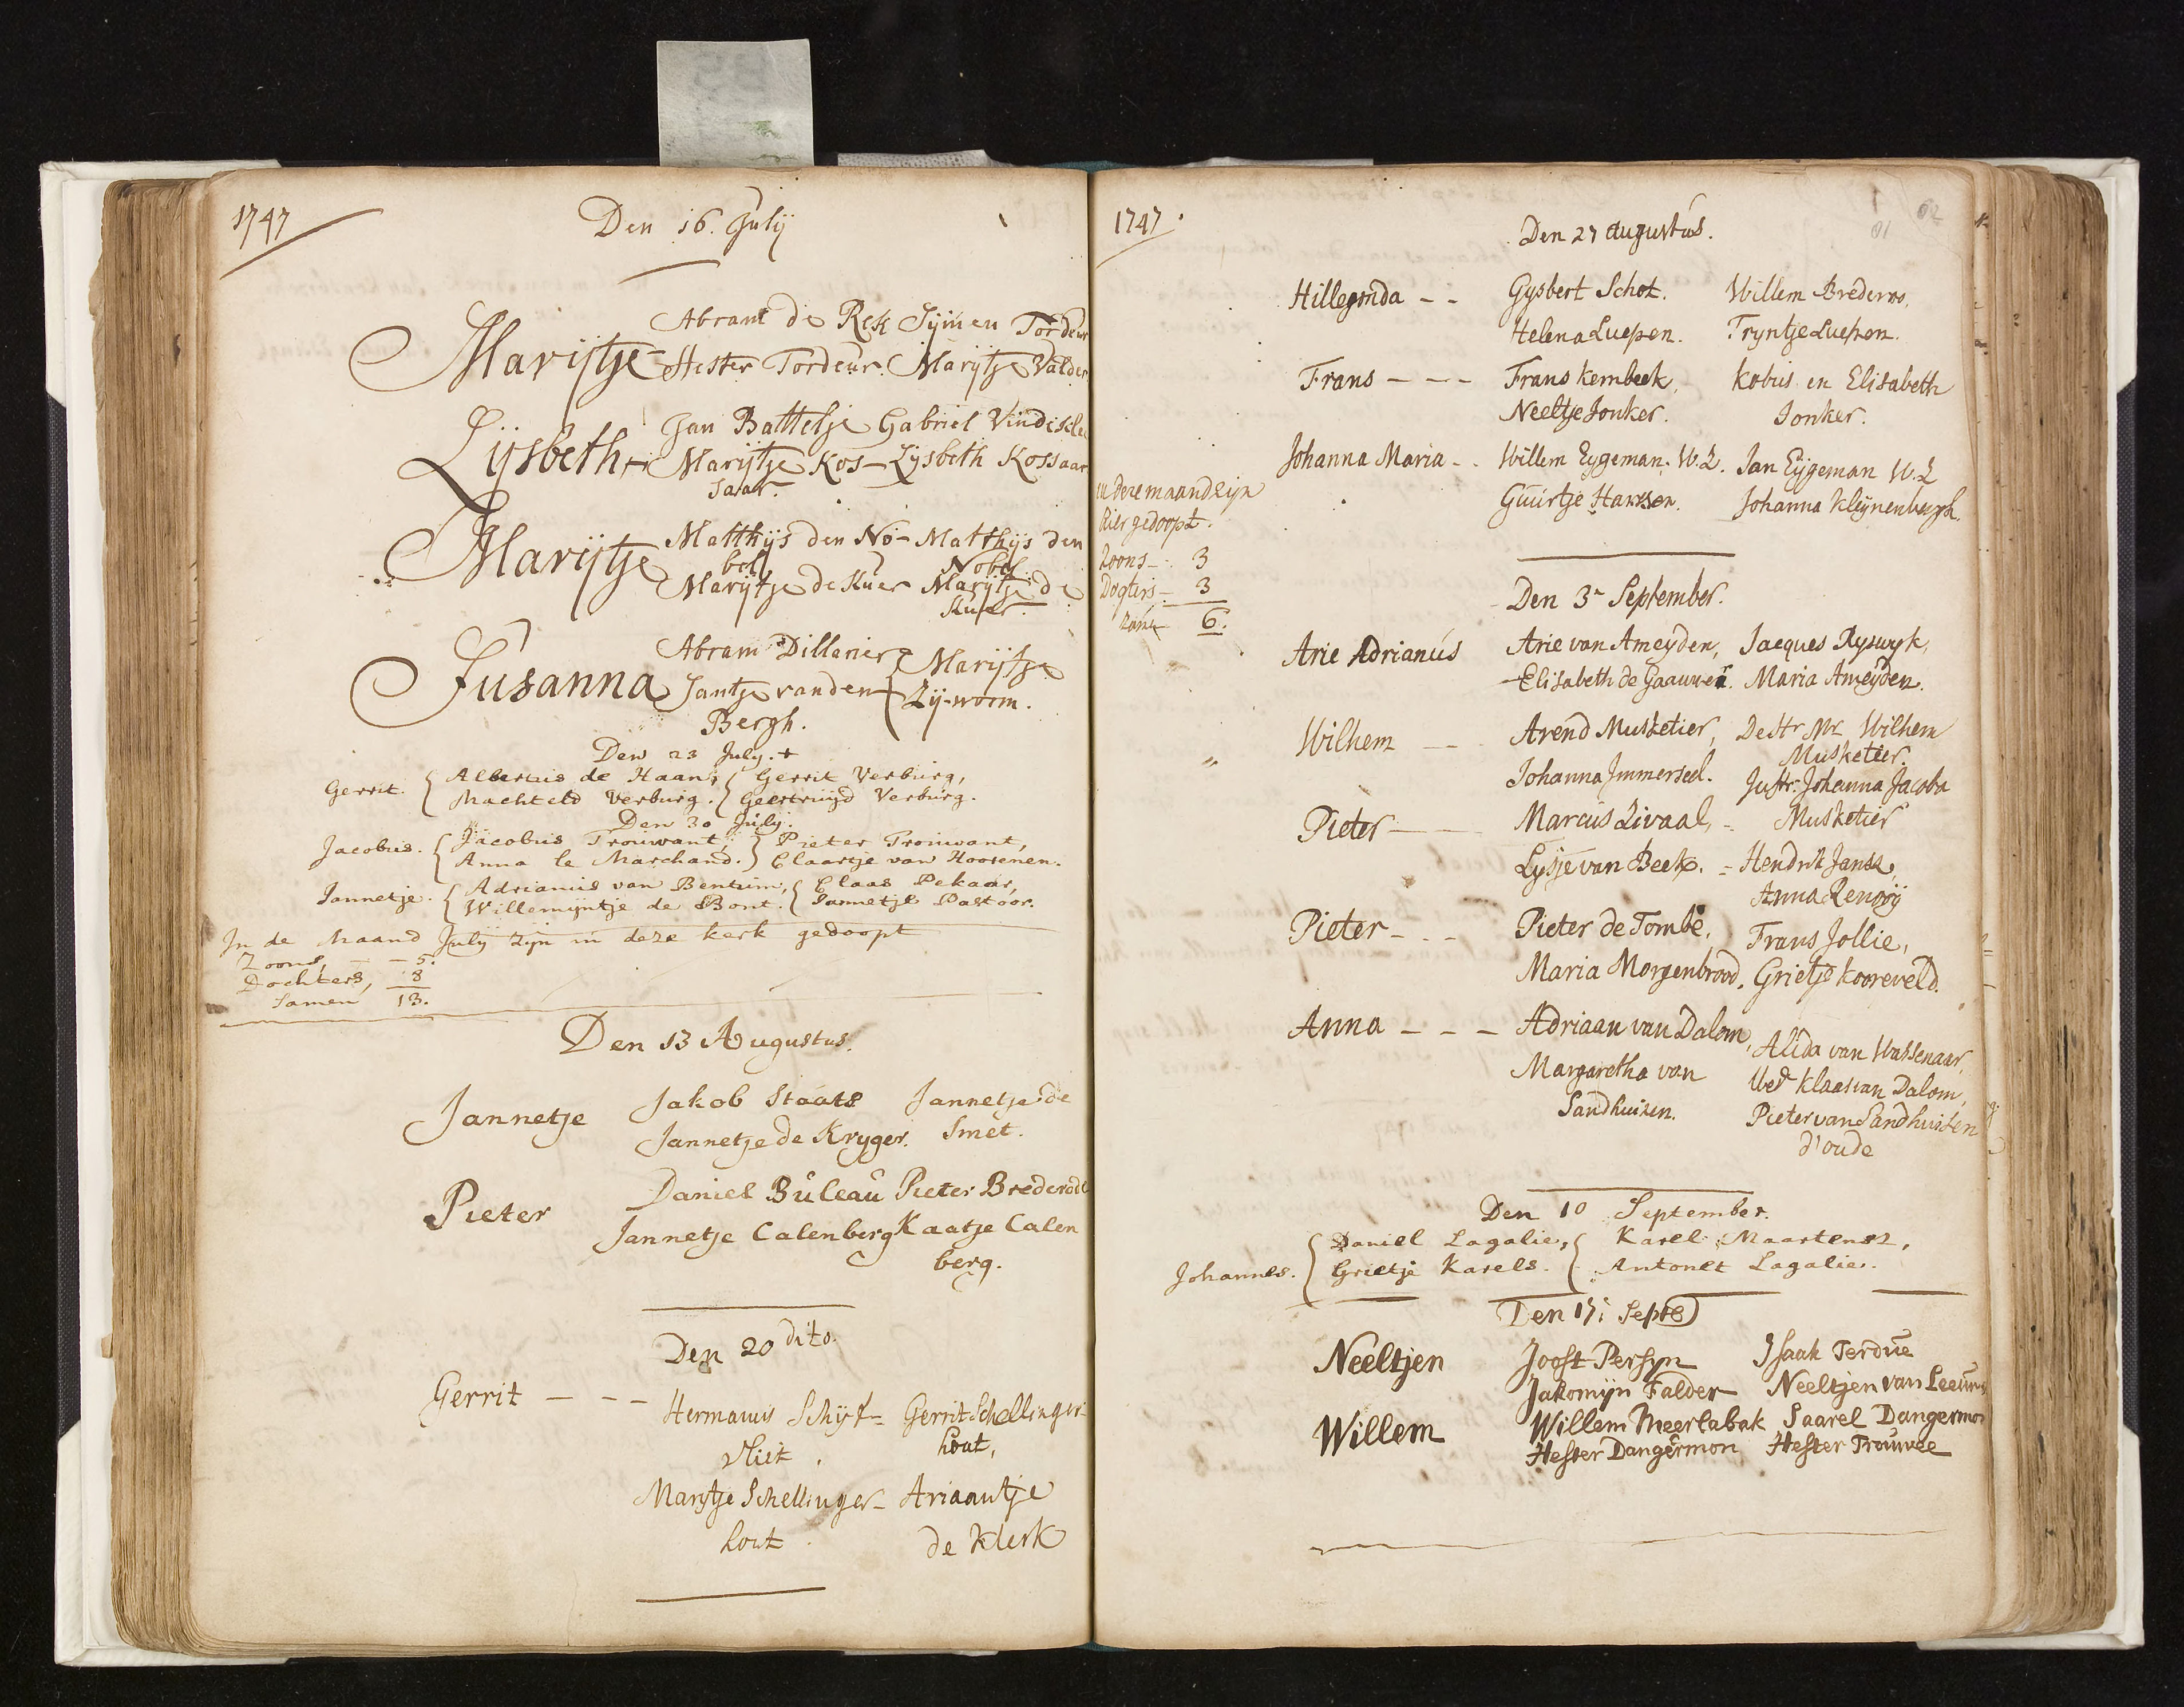 1747
Den 16. Julij
Abram de Rek Sijmen Tordeur
Marijtje Hester Tordeur. Marijtje Valder
Jan Battelje Gabriel Vindisch
Lijsbeth Marijtje Kos- Lijsbeth Kossaar
saar.
Matthijs den No- Matthijs den
Marijtje bel Nobel.
Marijtje de Kuer Marijtje de
Kuer.
Abram Dillanier Marijtje
Susanna Jantje vanden Zij-worm.
Bergh.
Den 23 July. +
Gerrit. { Albertus de Haan, { Gerrit Verburg,
Machteld Verburg. { Geertruijd Verburg.
Den 30 July.
Jacobus. { Jacobus Trouwant, } Pieter Trouwant,
Anna le Marchand. } Claartje van Hoorenen.
Jannetje. { Adrianus van Bentum, { Claas Pekaar,
Willemijntje de Bont. { Jannetje Pastoor.
In de Maand July zijn in deze kerk gedoopt
Zoons, - - 5.
Dochters, 8
Samen 13.
Den 13 Augustus.
Jannetje Jakob Staats Jannetje de
Jannetje de Kryger. Smet.
Pieter Daniel Buleau Pieter Brederode
Jannetje Calenberg Kaatje Calen
berg.
Den 20 dito.
Gerrit - - - Hermanus Schijf- Gerrit Schellinger-
vliet. hout,
Marijtje Schellinger- Ariaantje
hout. de Klerk
1747.
62
61
Den 27 augustus.
Hillegonda - - Gysbert Schot. Willem Brederoo.
Helena Luepen. Tryntje Luepen.
Frans - - - Frans Kembeek, Kobus en Elisabeth
Neeltje Jonker. Jonker.
Johanna Maria - . Willem Eygeman. W.Z. Jan Eijgeman W.Z
Guurtje Hanssen. Johanna Kleynenbergh.
in deze maand zijn
hier gedoopt.
Zoons - 3
Dogters - 3
zam 6.
Den 3n September.
Arie Adrianus Arie van Ameyden, Jacques Ryswyk,
Elisabeth de Gaauwer. Maria Ameyden.
Wilhem - - Arend Musketier, De Hr Mr Wilhem
Musketier.
Johanna Immerseel. Juffr. Johanna Jacoba
Musketier
Pieter - - Marcus Livaal,
Lysje van Beek. - Hendrik Jansz,
Anna Renooy
Pieter - . - Pieter de Tombe, Frans Jollie,
Maria Morgenbrood, Grietje Kooreveld.
Anna - - - Adriaan van Dalom, Alida van Wassenaar,
Margaretha van Wed. Klaas van Dalom,
Sandhuizen. Pieter van Sandhuisen
d'oude
Den 10 September.
Johannes. { Daniel Lagalie, { Karel Maartensz,
Grietje Karels. { Antonet Lagalie.
Den 17: Septb
Neeltjen Joost Persyn Isaak Terdue
Jakomijn Falder Neeltjen van Leeuwe
Willem Willem Meerlabak Saarel Dangermon
Hester Dangermon Hester Trouwee